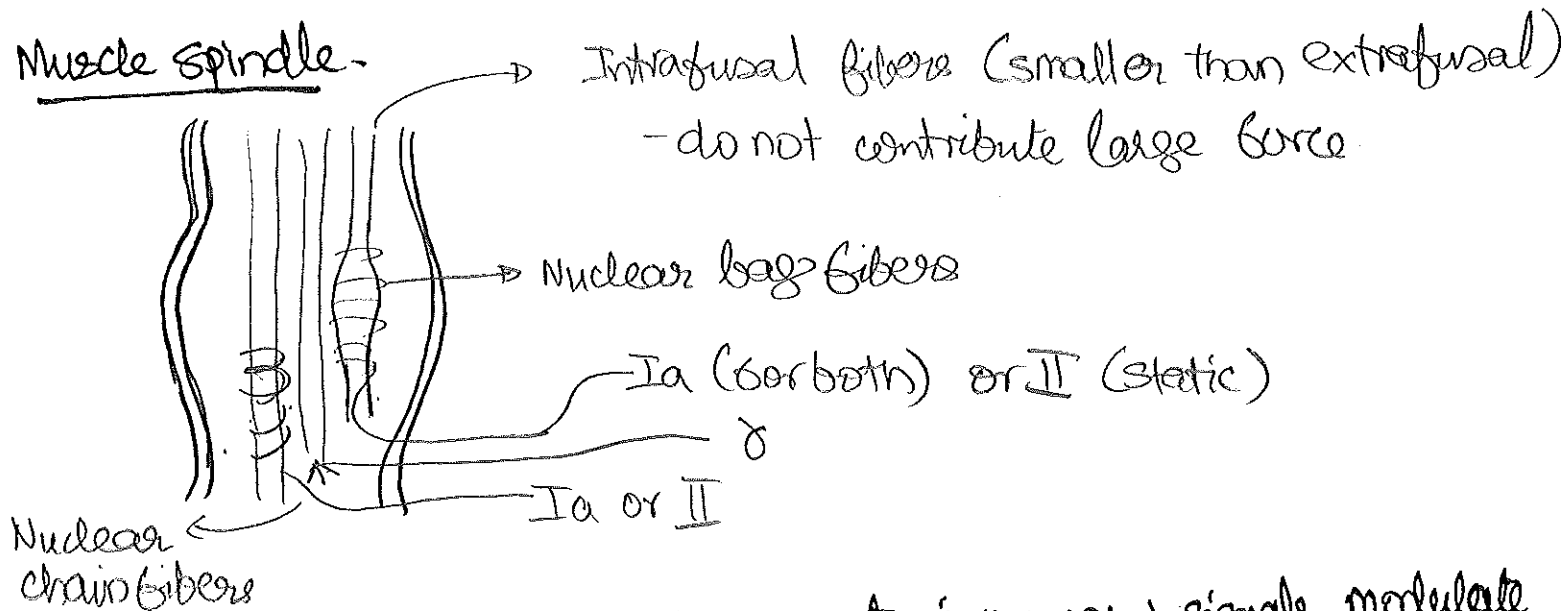 Muscle spindle-
Intrafusal fibers (smaller than extrafusal)
- do not contribute large force
Nuclear bag fibers
Ia (for both) or II (static)
γ
Ia or II
Nuclear
chain fibers
signals modulate